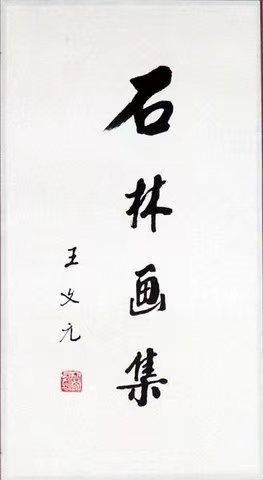 石林画集
王文元